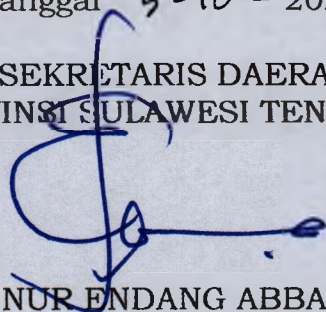 anggal 5-10-20
SEKRETARIS DAERA
INSI SULAWESI TEN
NUR ENDANG ABBA